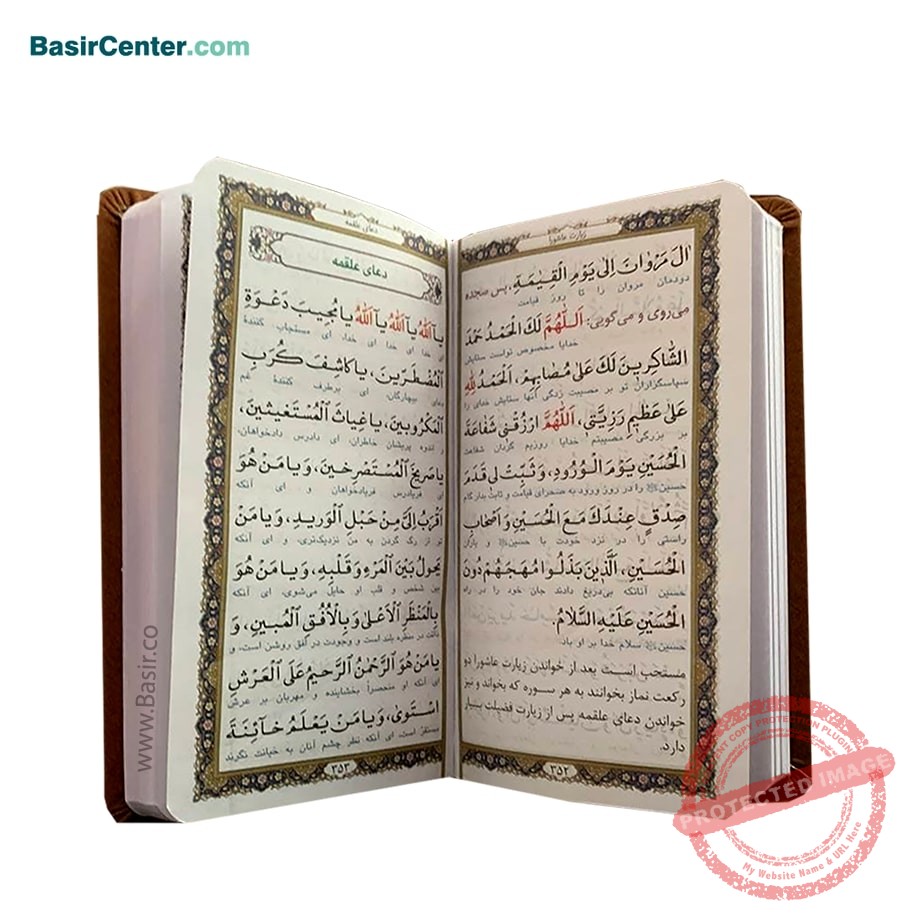 BasirCenter.com
زیارت عاشورا
اٰلَ مَرْوَانَ اِلىٰ يَوْمِ الْقِيٰمَةِ، پس سجده
دودمان مروان را تا روز قیامت
می‌روی و می‌گویی: اَللّٰهُمَّ لَكَ الْحَمْدُ حَمْدَ
خدایا مخصوص تواست ستایش
الشَّاكِرينَ لَكَ عَلىٰ مُصٰابِهِمْ، اَلْحَمْدُ لِلّٰهِ
سپاسگزاران تو بر مصیبت زدگی آنها ستایش خدای را
عَلىٰ عَظيمِ رَزِيَّتى، اَللّٰهُمَّ ارْزُقْنى شَفٰاعَةَ
بر بزرگی مصیبتم خدایا روزیم گردان شفاعت
الْحُسَيْنِ يَوْمَ الْوُرُودِ، وَ ثَبِّتْ لى قَدَمَ
حسین را در روز ورود به صحرای قیامت و ثابت بدار گام
صِدْقٍ عِنْدَكَ مَعَ الْحُسَيْنِ وَ اَصْحٰابِ
راستی را در نزد خودت با حسین و یاران
الْحُسَيْنِ، الَّذينَ بَذَلُوا مُهَجَهُمْ دُونَ
حسین آنانکه بی‌دریغ دادند جان خود را در راه
الْحُسَيْنِ عَلَيْهِ السَّلٰامُ.
حسین سلام خدا بر او باد.
مستحب است بعد از خواندن زیارت عاشورا دو
رکعت نماز بخوانند به هر سوره که بخواند و نیز
خواندن دعای علقمه پس از زیارت فضیلت بسیار
دارد.
۳۵۲
دعای علقمه
دعای علقمه
يٰا اَللّٰهُ يٰا اَللّٰهُ يٰا اَللّٰهُ يٰا مُجيبَ دَعْوَةِ
ای خدا ای خدا ای خدا، ای مستجاب کنندهٔ
الْمُضْطَرّينَ، يٰا كٰاشِفَ كُرَبِ
دعای بیچارگان، ای برطرف کنندهٔ غم
الْمَكْرُوبينَ، يٰا غِيٰاثَ الْمُسْتَغيثينَ،
و اندوه پریشان خاطران، ای دادرس دادخواهان،
يٰا صَريخَ الْمُسْتَصْرِخينَ، وَ يٰا مَنْ هُوَ
ای فریادرس فریادخواهان و ای آنکه
اَقْرَبُ اِلَىَّ مِنْ حَبْلِ الْوَريدِ، وَ يٰا مَنْ
تو از رگ گردن به من نزدیک‌تری، و ای آنکه
يَحُولُ بَيْنَ الْمَرْءِ وَ قَلْبِهِ، وَ يٰا مَنْ هُوَ
بین شخص و قلب او حایل می‌شوی، ای آنکه
بِالْمَنْظَرِ الْاَعْلىٰ وَ بِالْاُفُقِ الْمُبينِ، وَ
ذاتت در منظره بلند است و وجودت در افق روشن است، و
يٰا مَنْ هُوَ الرَّحْمٰنُ الرَّحيمُ عَلَى الْعَرْشِ
ای آنکه او منحصراً بخشاینده و مهربان بر عرش
اسْتَوىٰ، وَ يٰا مَنْ يَعْلَمُ خٰائِنَةَ
مستقر است، ای آنکه نظر چشم آنان به خیانت نگرند
۳۵۳
www.Basir.co
PROTECTED IMAGE
My Website Name & URL Here